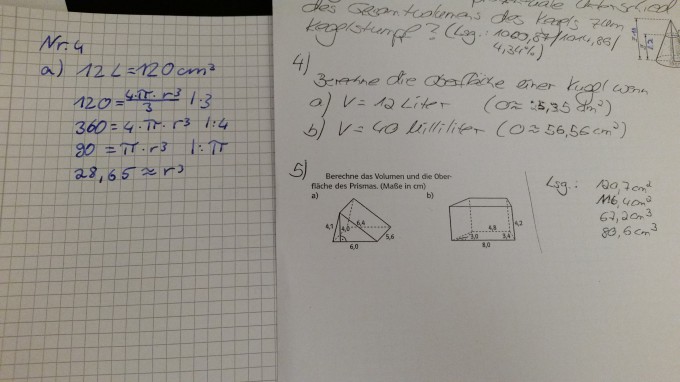 Nr. 4
a) 12 L = 120 cm³
120 = 4·π·r³/3 |·3
360 = 4·π·r³ |:4
90 = π·r³ |:π
28,65 ≈ r³
des Gesamtvolumens des Kegels zum
Kegelstumpf? (Lsg.:
4,34%)
4)
Berechne die Oberfläche einer Kugel wenn
a) V = 12 Liter (O≈ dm²)
b) V = 40 Milliliter (O≈56,56cm²)
5)
Berechne das Volumen und die Ober-
fläche des Prismas. (Maße in cm)
a) b)
4,1 4,0 6,4 5,6
6,0
4,8 4,2
3,0 3,4
8,0
Lsg.: 120,7cm²
116,4cm²
67,2cm³
80,6cm³